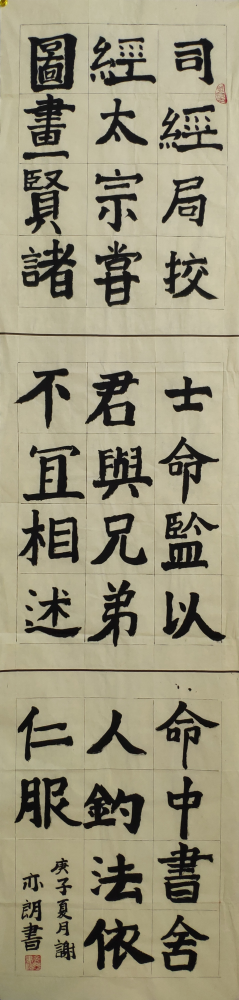 司經局挍
經太宗嘗
圖畫賢諸
士命監以
君與兄弟
不冝相述
命中書舍
人鈞法依
仁服
庚子夏月謝
亦朗書